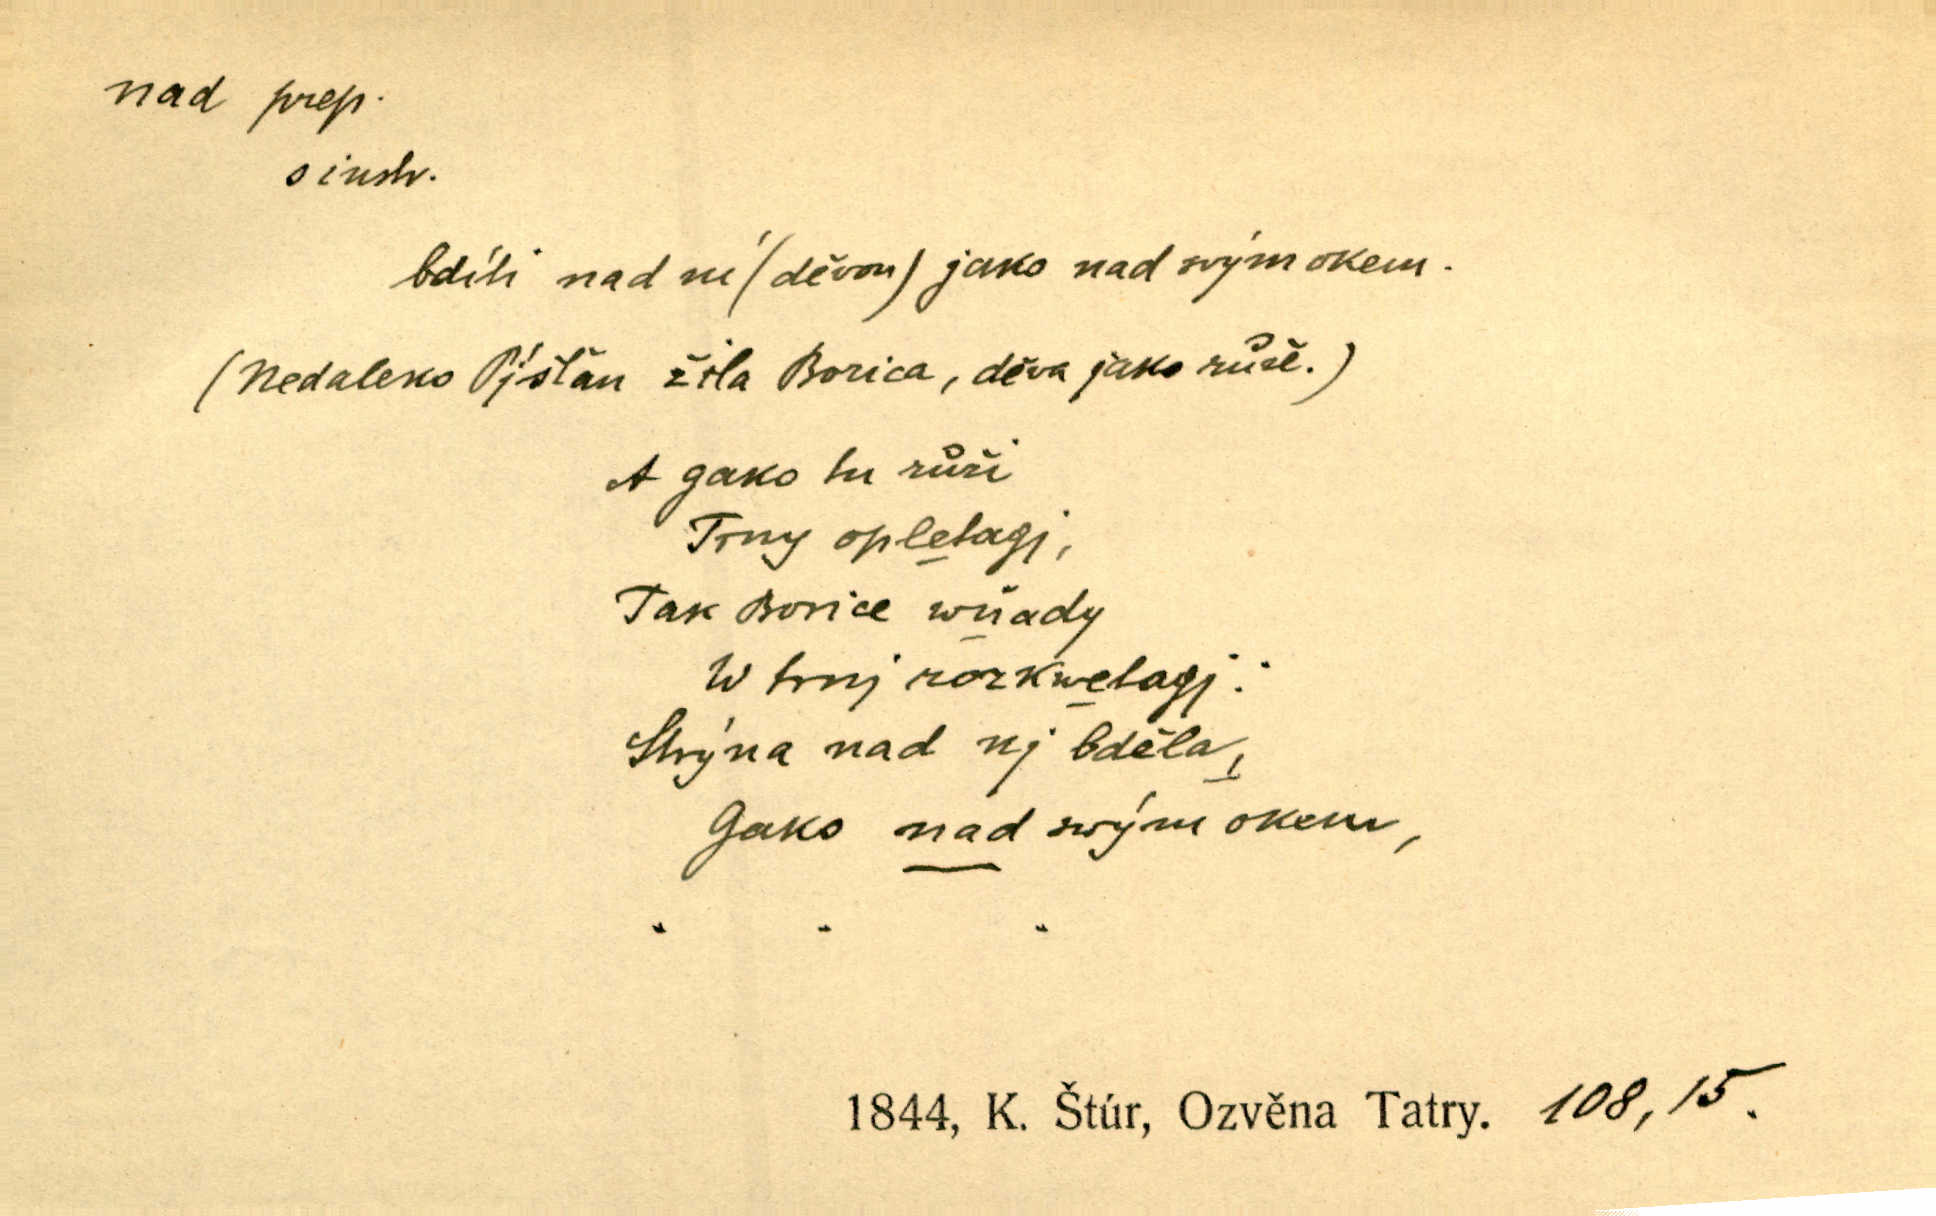 nad prep.
s instr.
bdíti nad ní (děvou) jako nad svým okem.
(Nedaleko Pjšťan žila Borica, děva jako růže.)
A gako tu růži
Trny opletagj,
Tak Borice wnady
W trnj rozkwetagj:
Strýna nad nj bděla,
Gako nad swým okem,
. . .
1844, K. Štúr, Ozvěna Tatry. 108, 15.